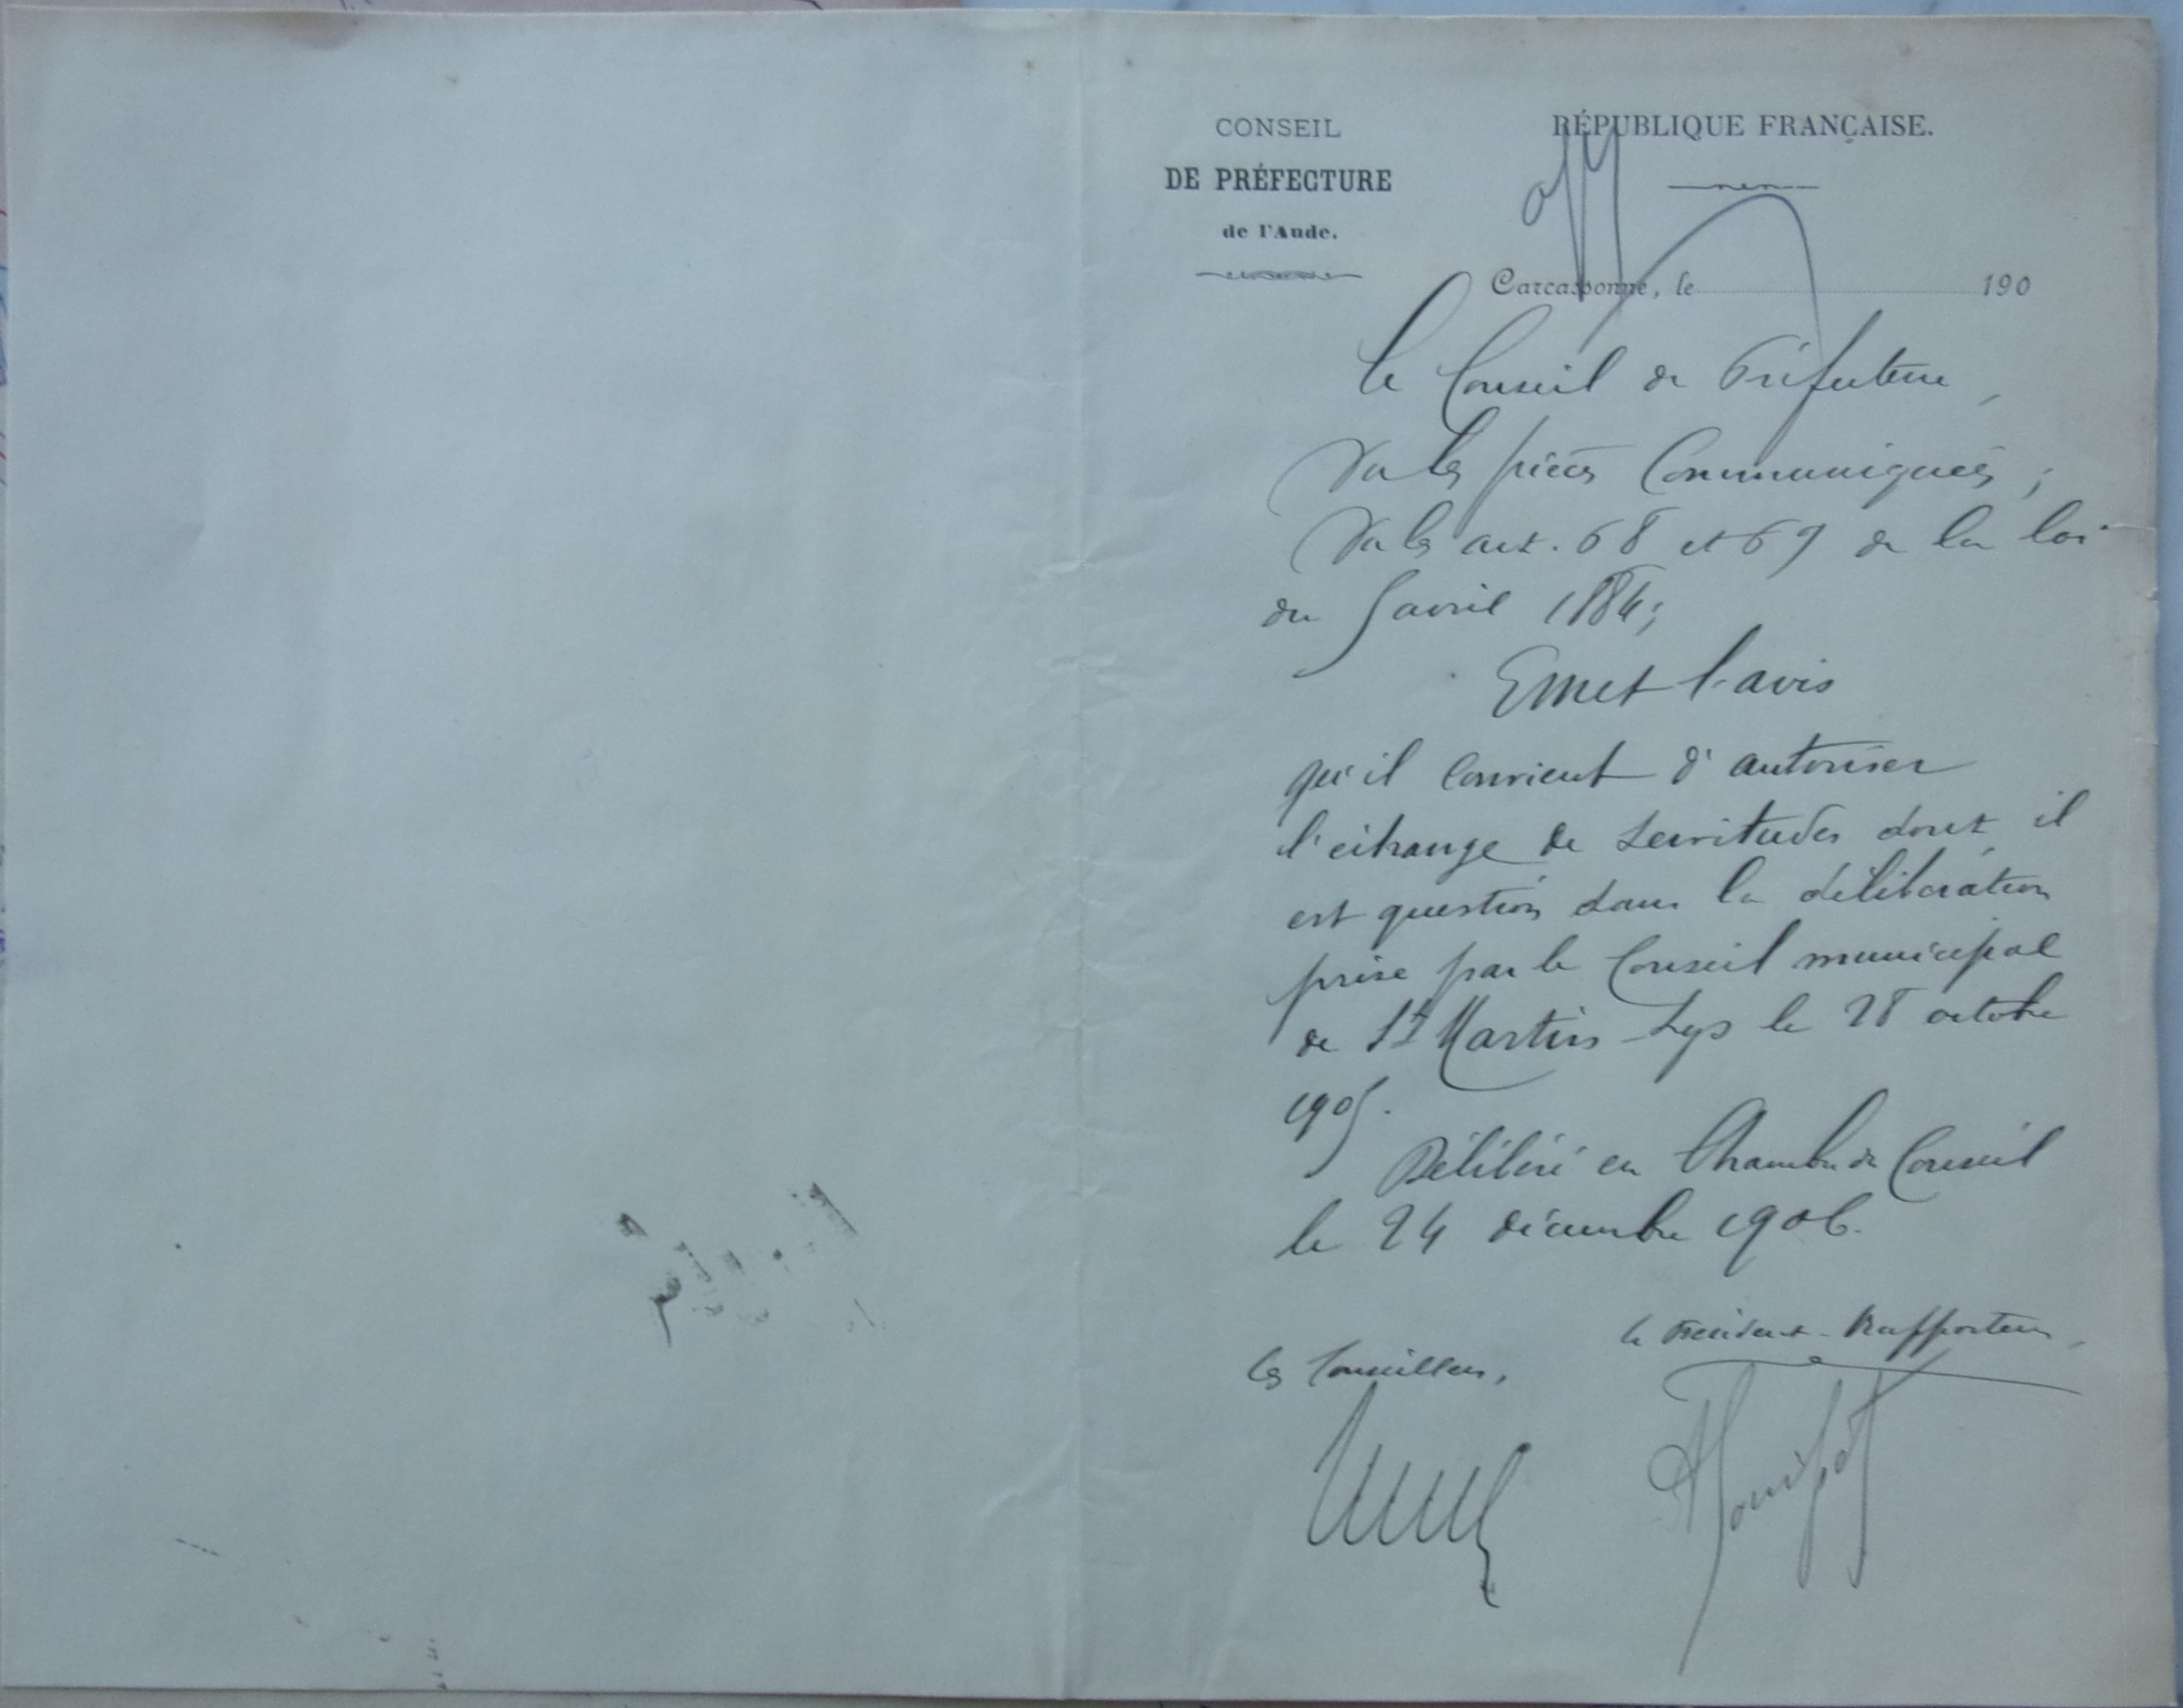 CONSEIL
DE PRÉFECTURE
de l'Aude.
RÉPUBLIQUE FRANÇAISE.
Carcassonne, le 190
Le Conseil de Préfecture,
Vu les pièces communiquées;
Vu les art. 68 et 69 de la loi
du 5 avril 1884;
Emet l'avis
qu'il convient d'autoriser
l'échange de servitudes dont il
est question dans la délibération
prise par le Conseil municipal
de St Martin-Lys le 28 octobre
1905.
Délibéré en Chambre du Conseil
le 24 décembre 1906.
Le Président-Rapporteur,
Les Conseillers,